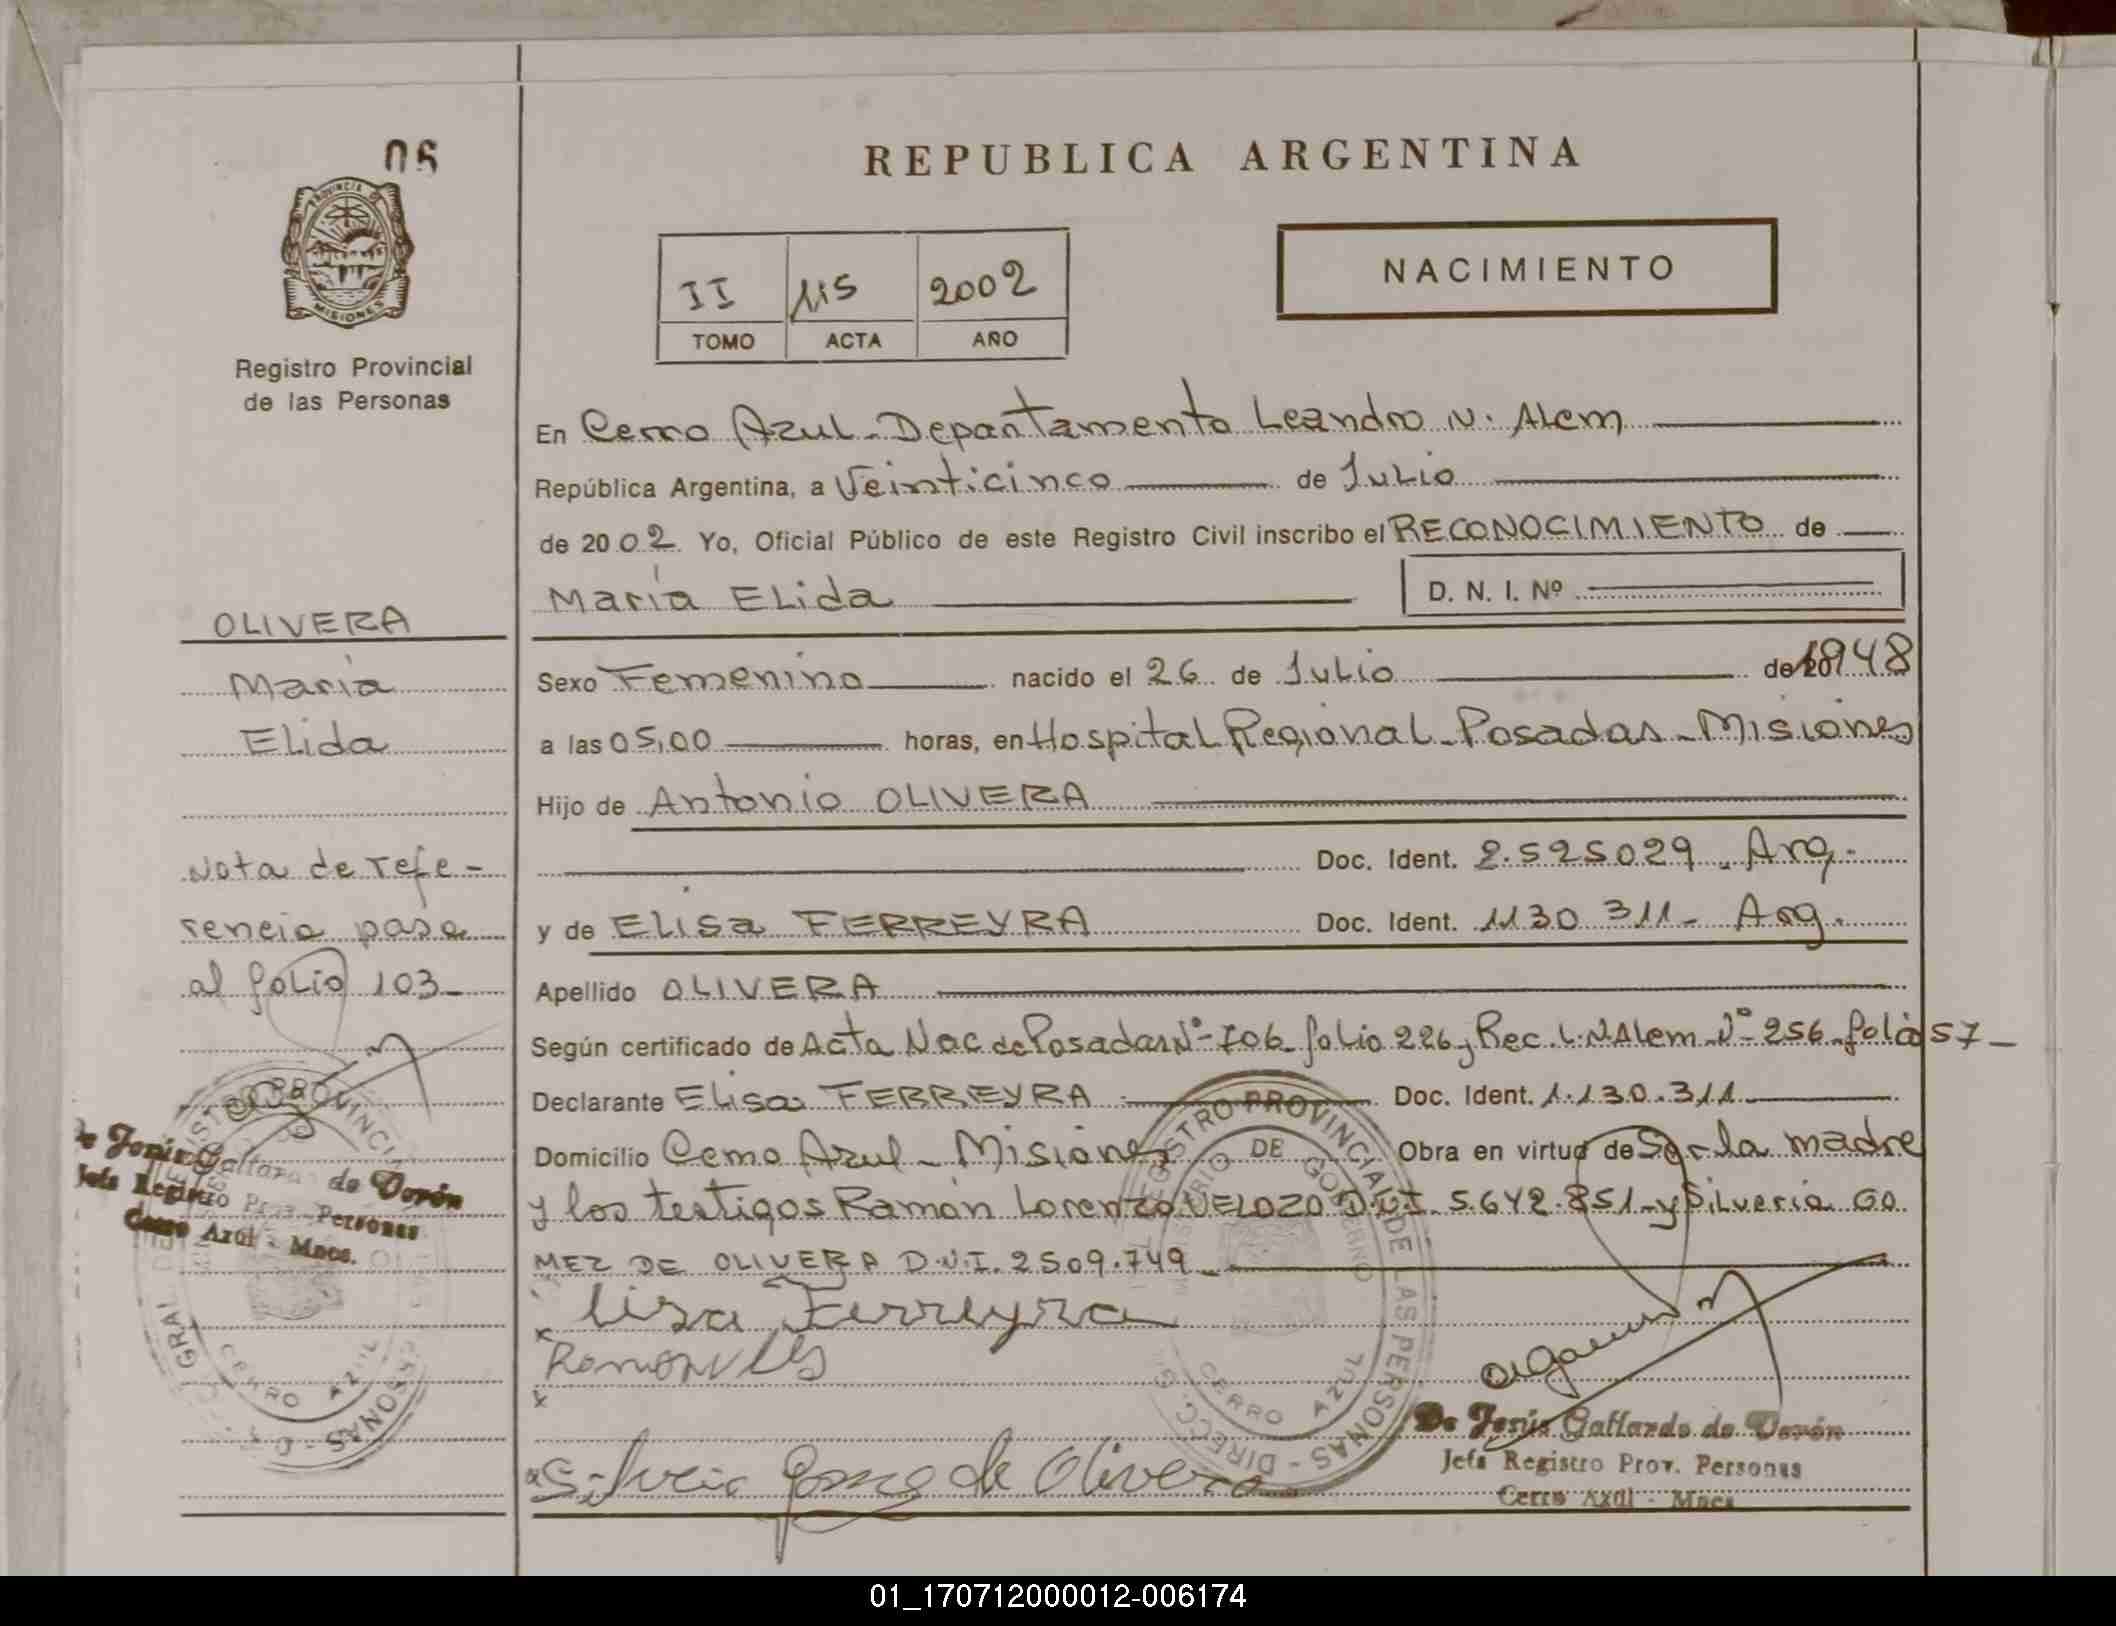 06
PROVINCIA DE
MISIONES
Registro Provincial
de las Personas
REPUBLICA ARGENTINA
II 115 2002
TOMO ACTA AÑO
NACIMIENTO
En Cerro Azul - Departamento Leandro N. Alem
República Argentina, a Veinticinco de Julio
de 2002 Yo, Oficial Público de este Registro Civil inscribo el RECONOCIMIENTO de
María Elida D. N. I. Nº
OLIVERA
María
Elida
Sexo Femenino nacido el 26 de Julio de 1948
a las 05,00 horas, en Hospital Regional - Posadas - Misiones
Hijo de Antonio OLIVERA
Doc. Ident. 2.525029 - Arg.
y de Elisa FERREYRA Doc. Ident. 1130 311 - Arg.
Apellido OLIVERA
Nota de refe-
rencia pasa
al folio 103-
Según certificado de Acta Nac de Posadas Nº 706 folio 226 y Rec. L.N Alem Nº 256 folio 57-
Declarante Elisa FERREYRA Doc. Ident. 1.130.311
Domicilio Cerro Azul - Misiones Obra en virtud de Ser la madre
y los testigos Ramón Lorenzo VELOZO D.N.I. 5.642.851 - y Silveria GO
MEZ DE OLIVERA D.N.I. 2509.749
Elisa Ferreyra
Silveria Gomez de Olivera
De Jesús Gallardo de Verón
Jefa Registro Prov. Personas
Cerro Azul - Mnes.
De Jesús Gallardo de Verón
Jefa Registro Prov. Personas
Cerro Azul - Mnes
REGISTRO PROVINCIAL DE LAS PERSONAS - DIRECC. GRAL
MINISTERIO DE GOBIERNO
CERRO AZUL
01_170712000012-006174